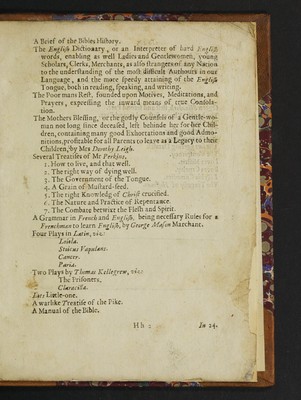 A Brief of the Bibles History.
The English Dictionary, or an Interpreter of hard English
words, enabling as well Ladies and Gentlewomen, young
Scholars, Clerks, Merchants, as also strangers of any Nation
to the understanding of the most difficult Authours in our
Language, and the more speedy attaining of the English
Tongue, both in reading, speaking, and writing.
The Poor mans Rest, founded upon Motives, Meditations, and
Prayers, expressing the inward means of true Consola-
tion.
The Mothers Blessing, or the godly Counsels of a Gentle-wo-
man not long since deceased, left behinde her for her Chil-
dren, containing many good Exhortations and good Admo-
nitions, profitable for all Parents to leave as a Legacy to their
Children, by Mrs Dorothy Leigh.
Several Treatises of Mr Perkins.
1. How to live, and that well.
2. The right way of dying well.
3. The Government of the Tongue.
4. A Grain of Mustard-seed.
5. The right Knowledg of Christ crucified.
6. The Nature and Practice of Repentance.
7. The Combate betwixt the Flesh and Spirit.
A Grammar in French and English, being necessary Rules for a
Frenchman to learn English, by George Mason Marchant.
Four Plays in Latin, viz.
Loiola.
Stoicus Vapulans.
Cancer.
Paria.
Two Plays by Thomas Kellegrew, viz:
The Prisoners,
Claracilla.
Ears Little-one.
A warlike Treatise of the Pike.
A Manual of the Bible.
Hh 2 In 24.